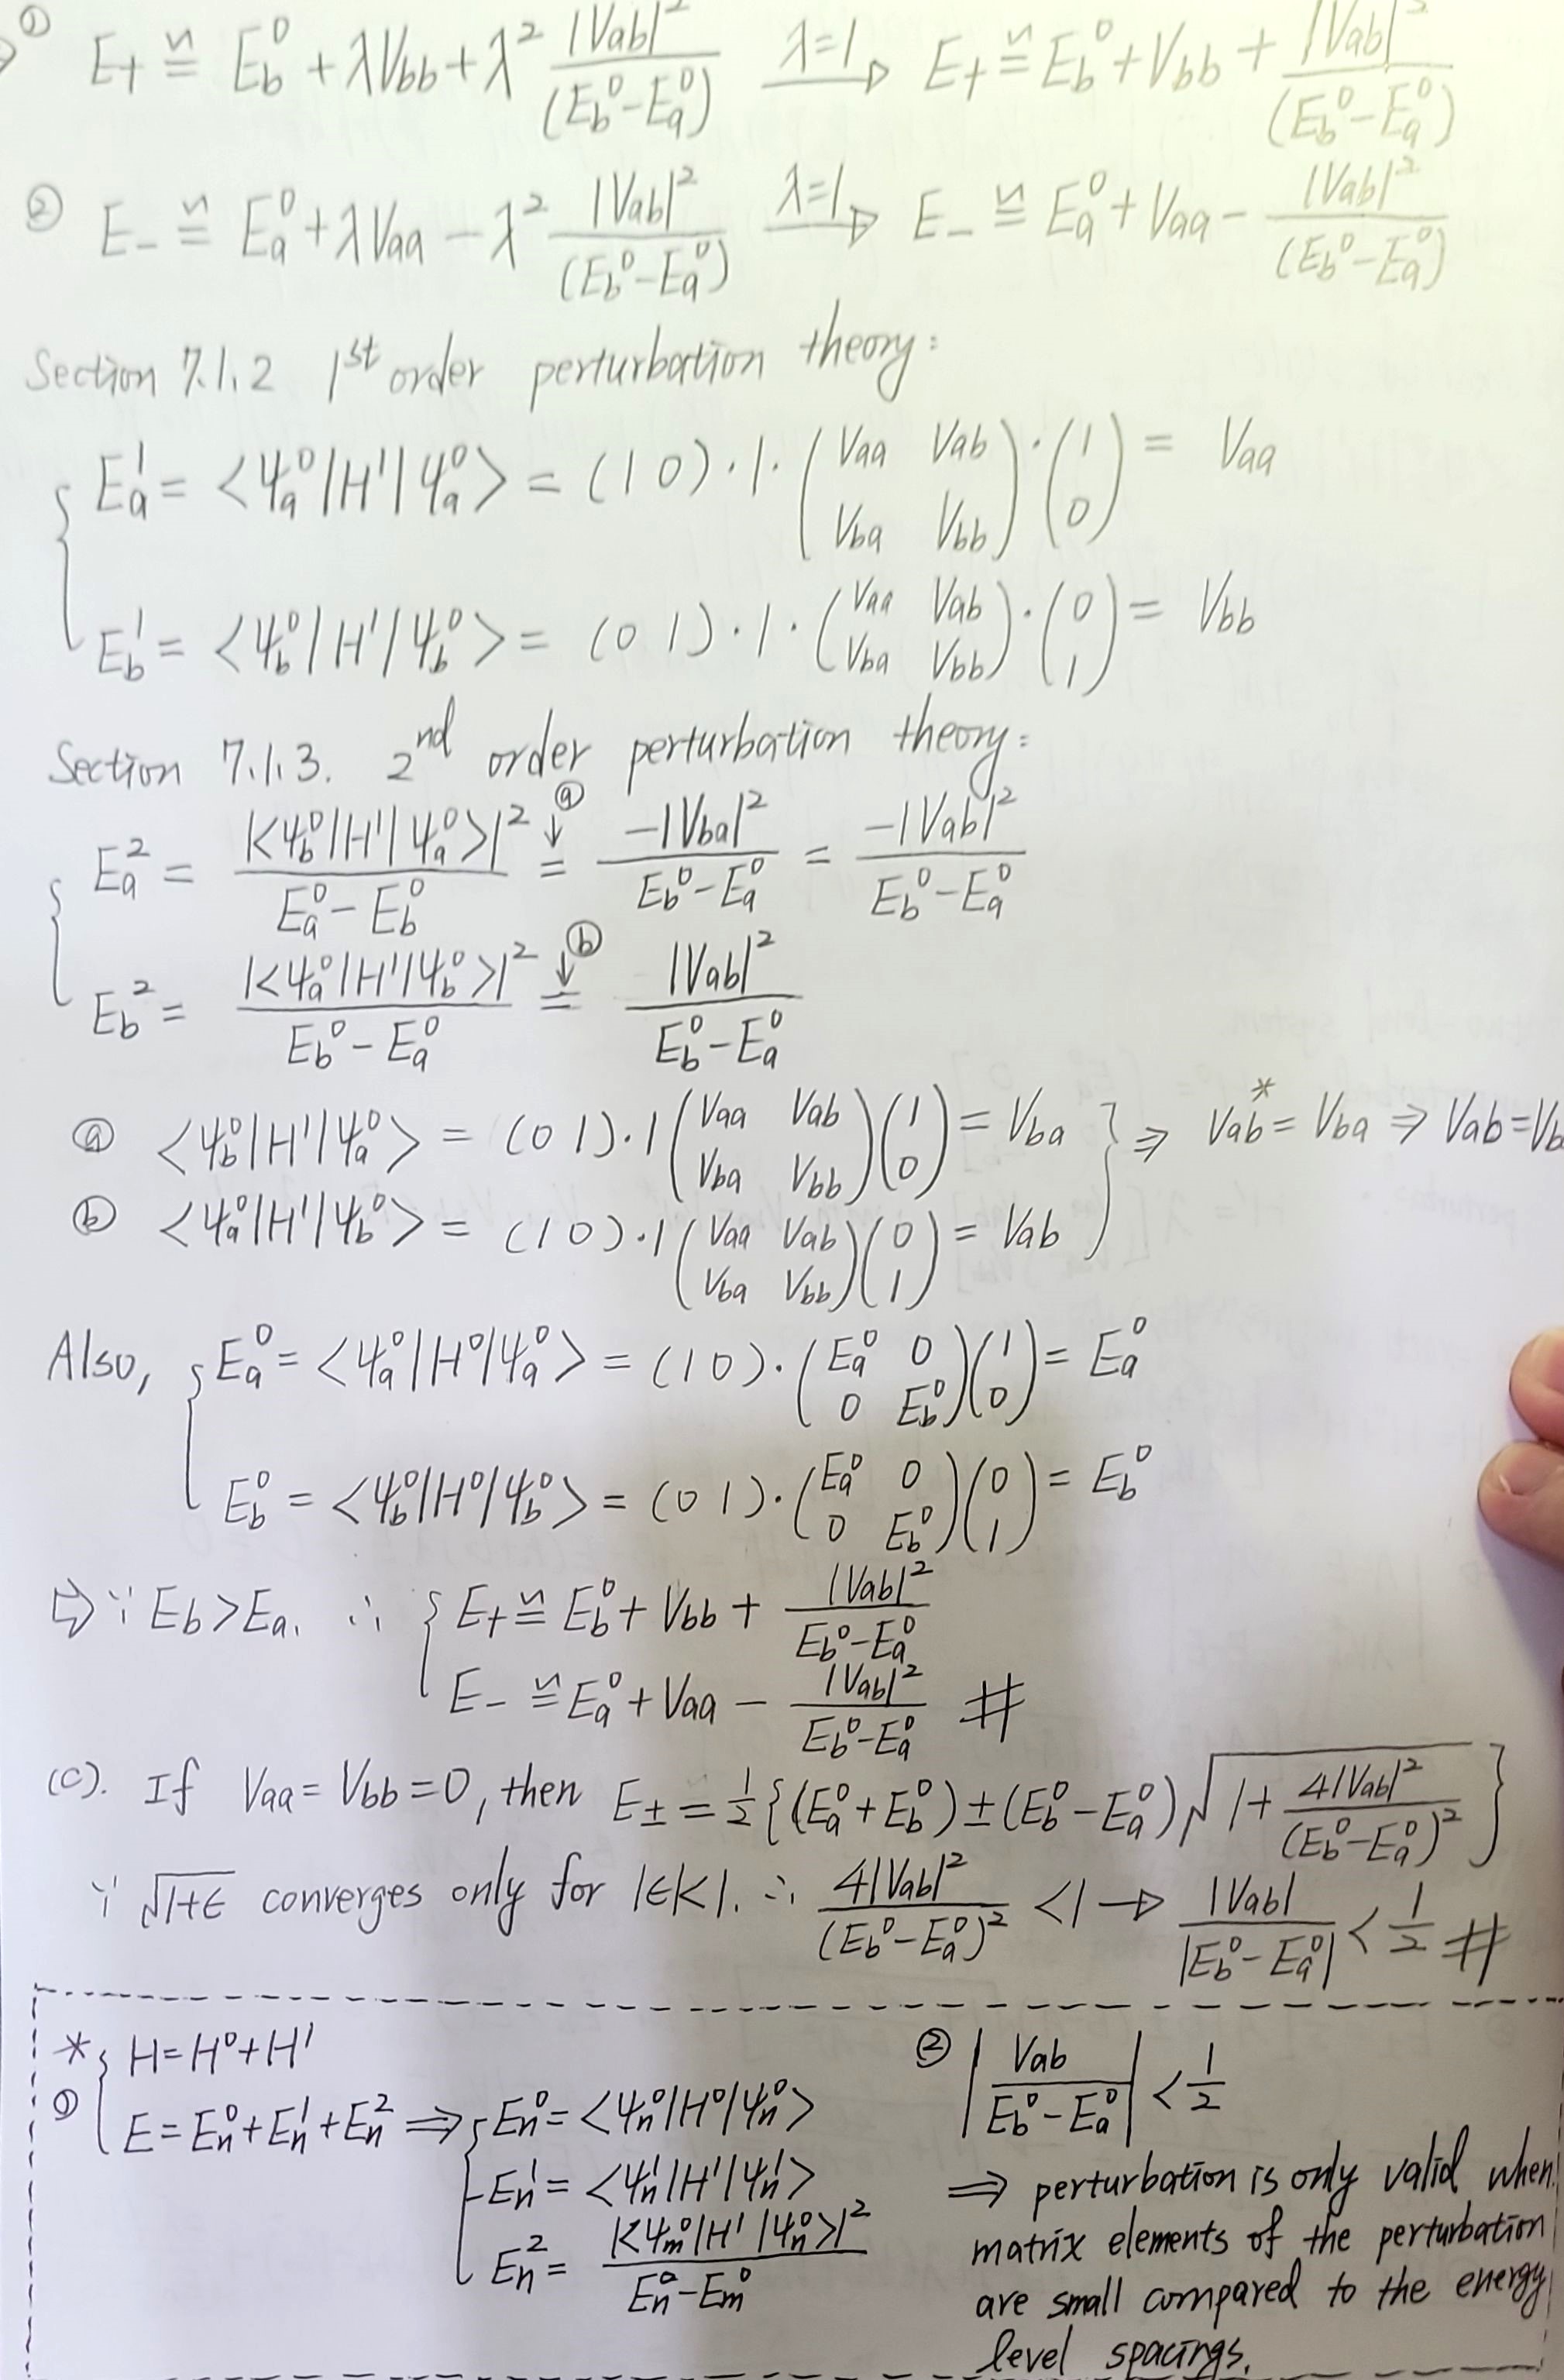 ① E+ ≌ Eb⁰ + λVbb + λ² |Vab|² / (Eb⁰ − Ea⁰) —λ=1→ E+ ≌ Eb⁰ + Vbb + |Vab|² / (Eb⁰ − Ea⁰)
② E− ≌ Ea⁰ + λVaa − λ² |Vab|² / (Eb⁰ − Ea⁰) —λ=1→ E− ≌ Ea⁰ + Vaa − |Vab|² / (Eb⁰ − Ea⁰)
Section 7.1.2 1st order perturbation theory:
Ea¹ = <ψa⁰|H'|ψa⁰> = (1 0)·1·(Vaa Vab; Vba Vbb)·(1; 0) = Vaa
Eb¹ = <ψb⁰|H'|ψb⁰> = (0 1)·1·(Vaa Vab; Vba Vbb)·(0; 1) = Vbb
Section 7.1.3. 2nd order perturbation theory:
Ea² = |<ψb⁰|H'|ψa⁰>|² / (Ea⁰ − Eb⁰) =(ⓐ↓) −|Vba|² / (Eb⁰ − Ea⁰) = −|Vab|² / (Eb⁰ − Ea⁰)
Eb² = |<ψa⁰|H'|ψb⁰>|² / (Eb⁰ − Ea⁰) =(ⓑ↓) |Vab|² / (Eb⁰ − Ea⁰)
ⓐ <ψb⁰|H'|ψa⁰> = (0 1)·1 (Vaa Vab; Vba Vbb)(1; 0) = Vba } ⇒ Vab* = Vba ⇒ Vab = Vb
ⓑ <ψa⁰|H'|ψb⁰> = (1 0)·1 (Vaa Vab; Vba Vbb)(0; 1) = Vab
Also, Ea⁰ = <ψa⁰|H⁰|ψa⁰> = (1 0)·(Ea⁰ 0; 0 Eb⁰)(1; 0) = Ea⁰
Eb⁰ = <ψb⁰|H⁰|ψb⁰> = (0 1)·(Ea⁰ 0; 0 Eb⁰)(0; 1) = Eb⁰
⇨ ∵ Eb > Ea. ∴ { E+ ≌ Eb⁰ + Vbb + |Vab|² / (Eb⁰ − Ea⁰)
E− ≌ Ea⁰ + Vaa − |Vab|² / (Eb⁰ − Ea⁰) #
(c). If Vaa = Vbb = 0, then E± = ½{(Ea⁰ + Eb⁰) ± (Eb⁰ − Ea⁰)√(1 + 4|Vab|² / (Eb⁰ − Ea⁰)²)}
∵ √(1+ε) converges only for |ε|<1. ∴ 4|Vab|² / (Eb⁰ − Ea⁰)² < 1 → |Vab| / |Eb⁰ − Ea⁰| < 1/2 #
* ① { H = H⁰ + H'
E = En⁰ + En¹ + En² ⇒ { En⁰ = <ψn⁰|H⁰|ψn⁰>
En¹ = <ψn¹|H'|ψn¹>
En² = |<ψm⁰|H'|ψn⁰>|² / (En⁰ − Em⁰)
② |Vab / (Eb⁰ − Ea⁰)| < 1/2
⇒ perturbation is only valid when
matrix elements of the perturbation
are small compared to the energy
level spacings.